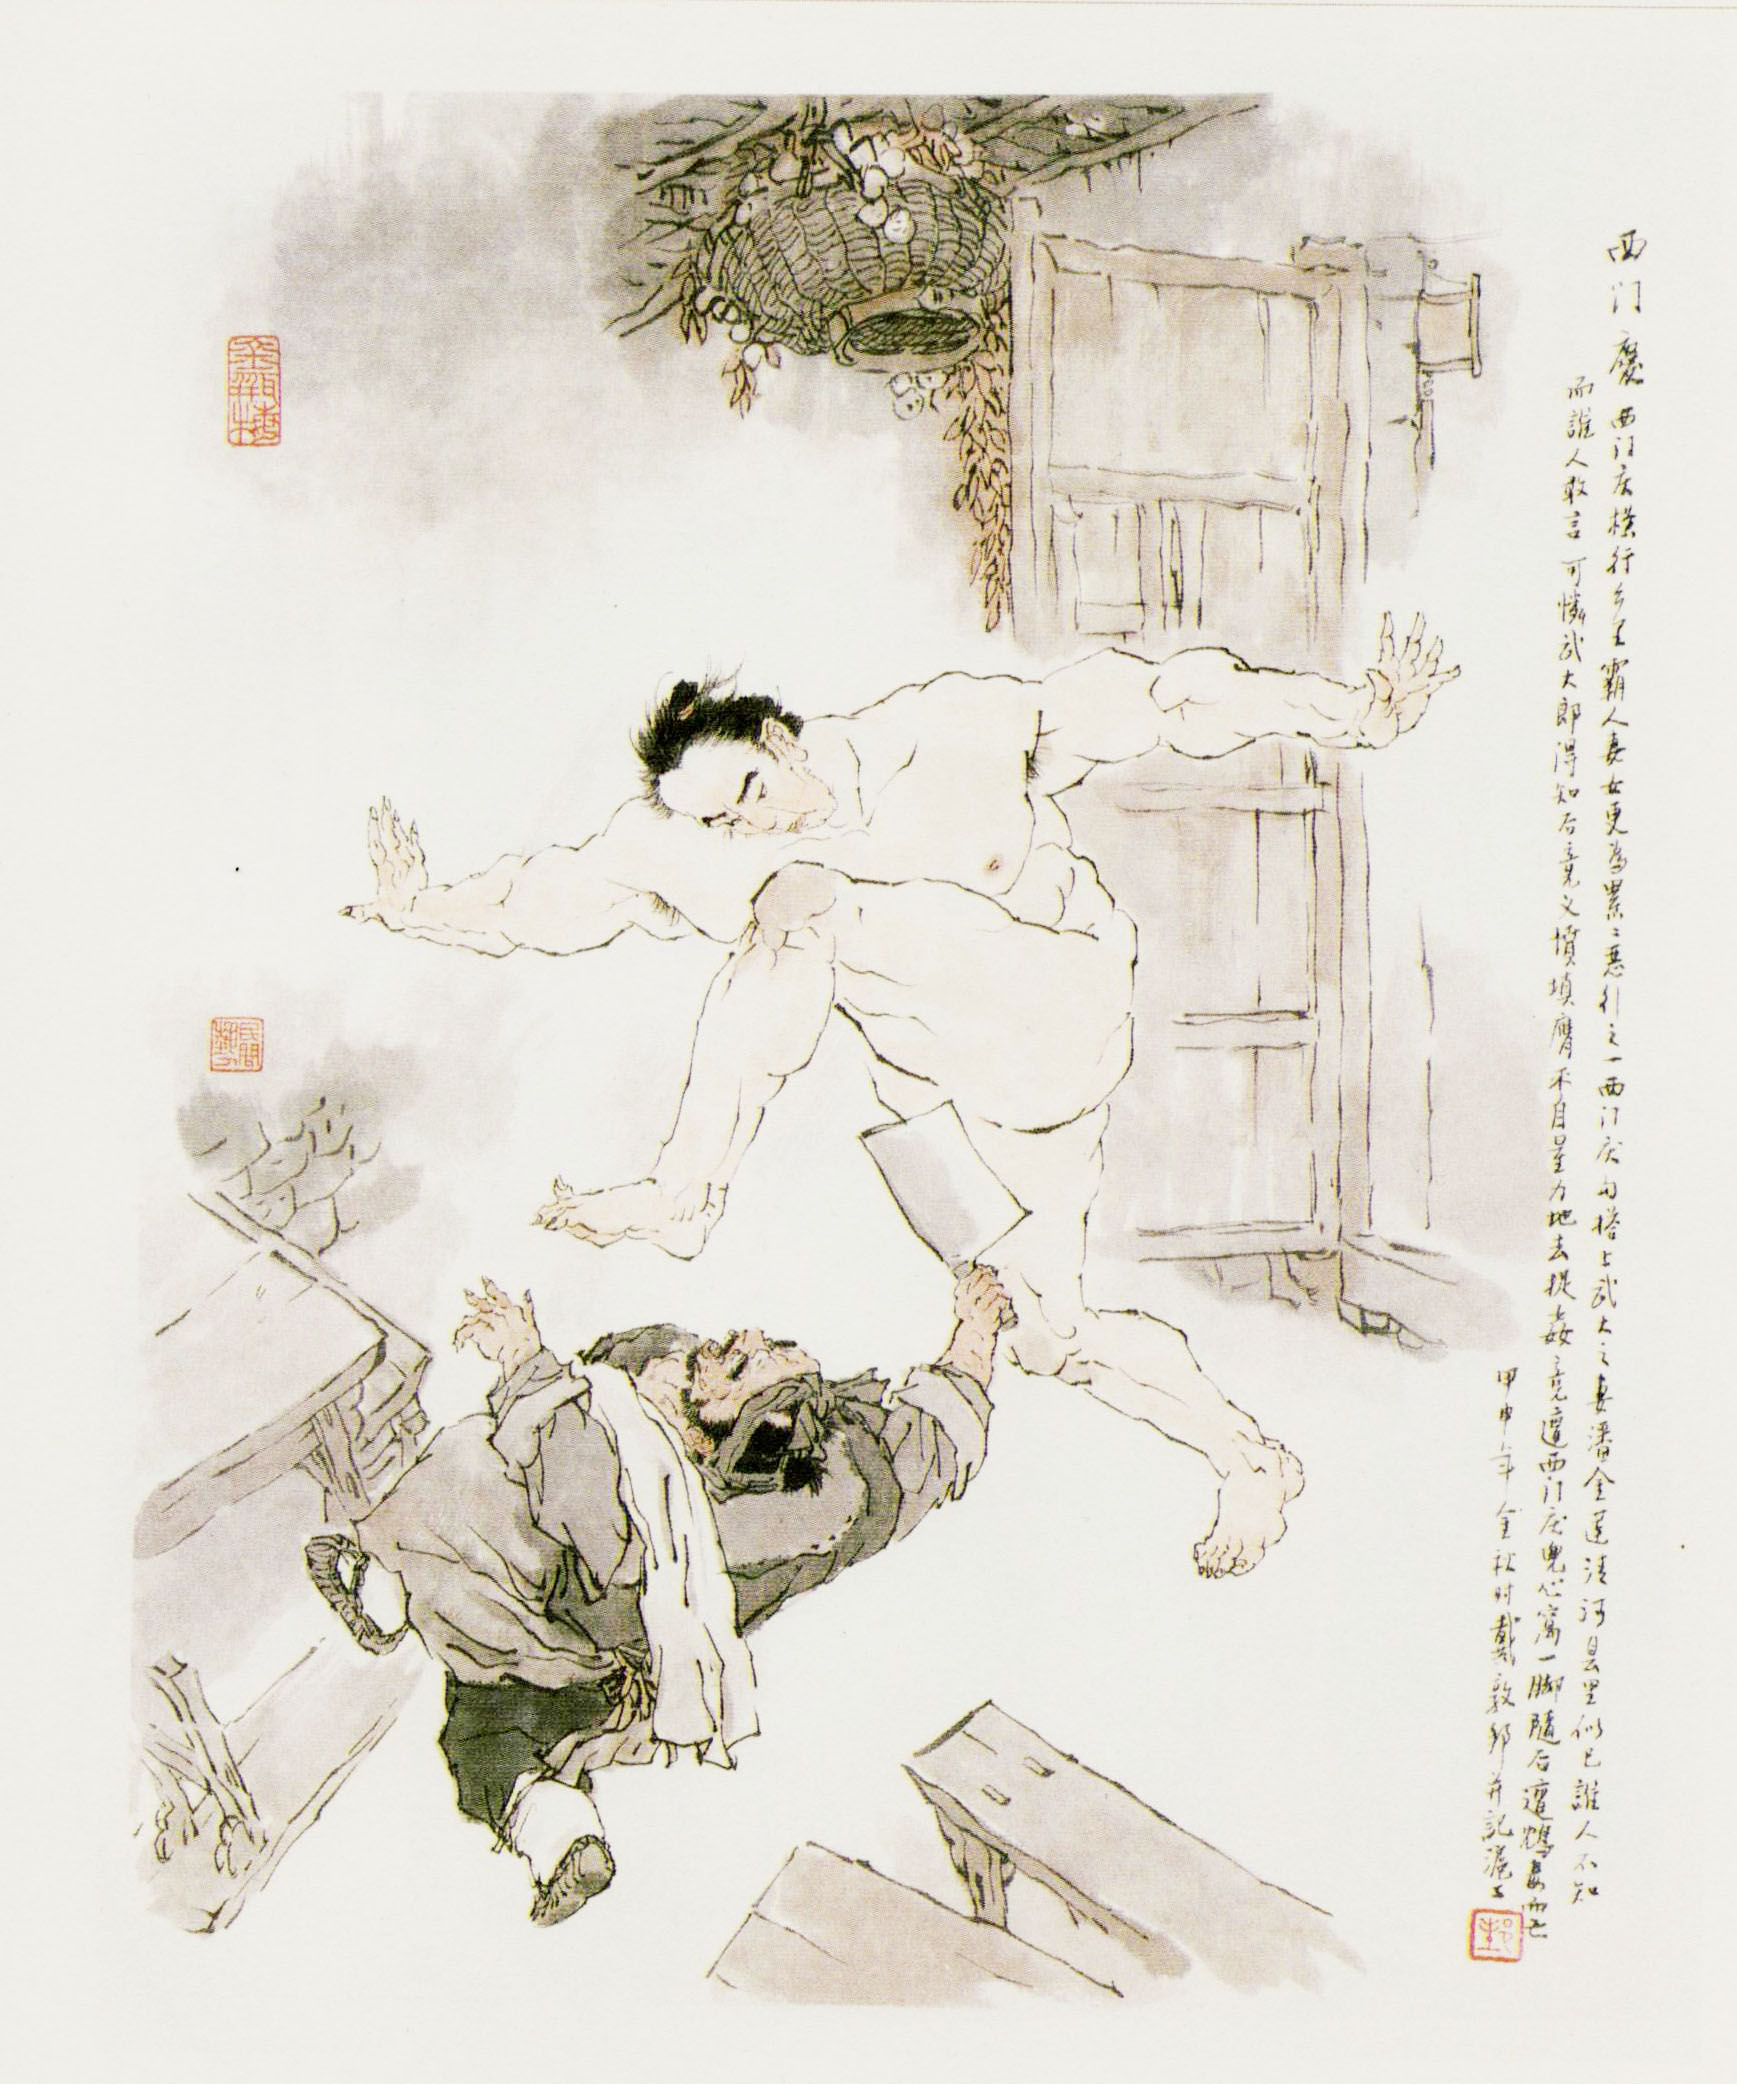 西门慶 西门庆横行乡里霸人妻女更为累累恶行之一西门庆勾搭上武大之妻潘金莲清河县里似已誰人不知
而誰人敢言可憐武大郎得知后竟义墳填膺不自量力地去捉姦竟遭西门庆兜心窝一脚隨后遭鴆毒而亡
甲申年金秋时戴敦邦并記滬上
民間藝人